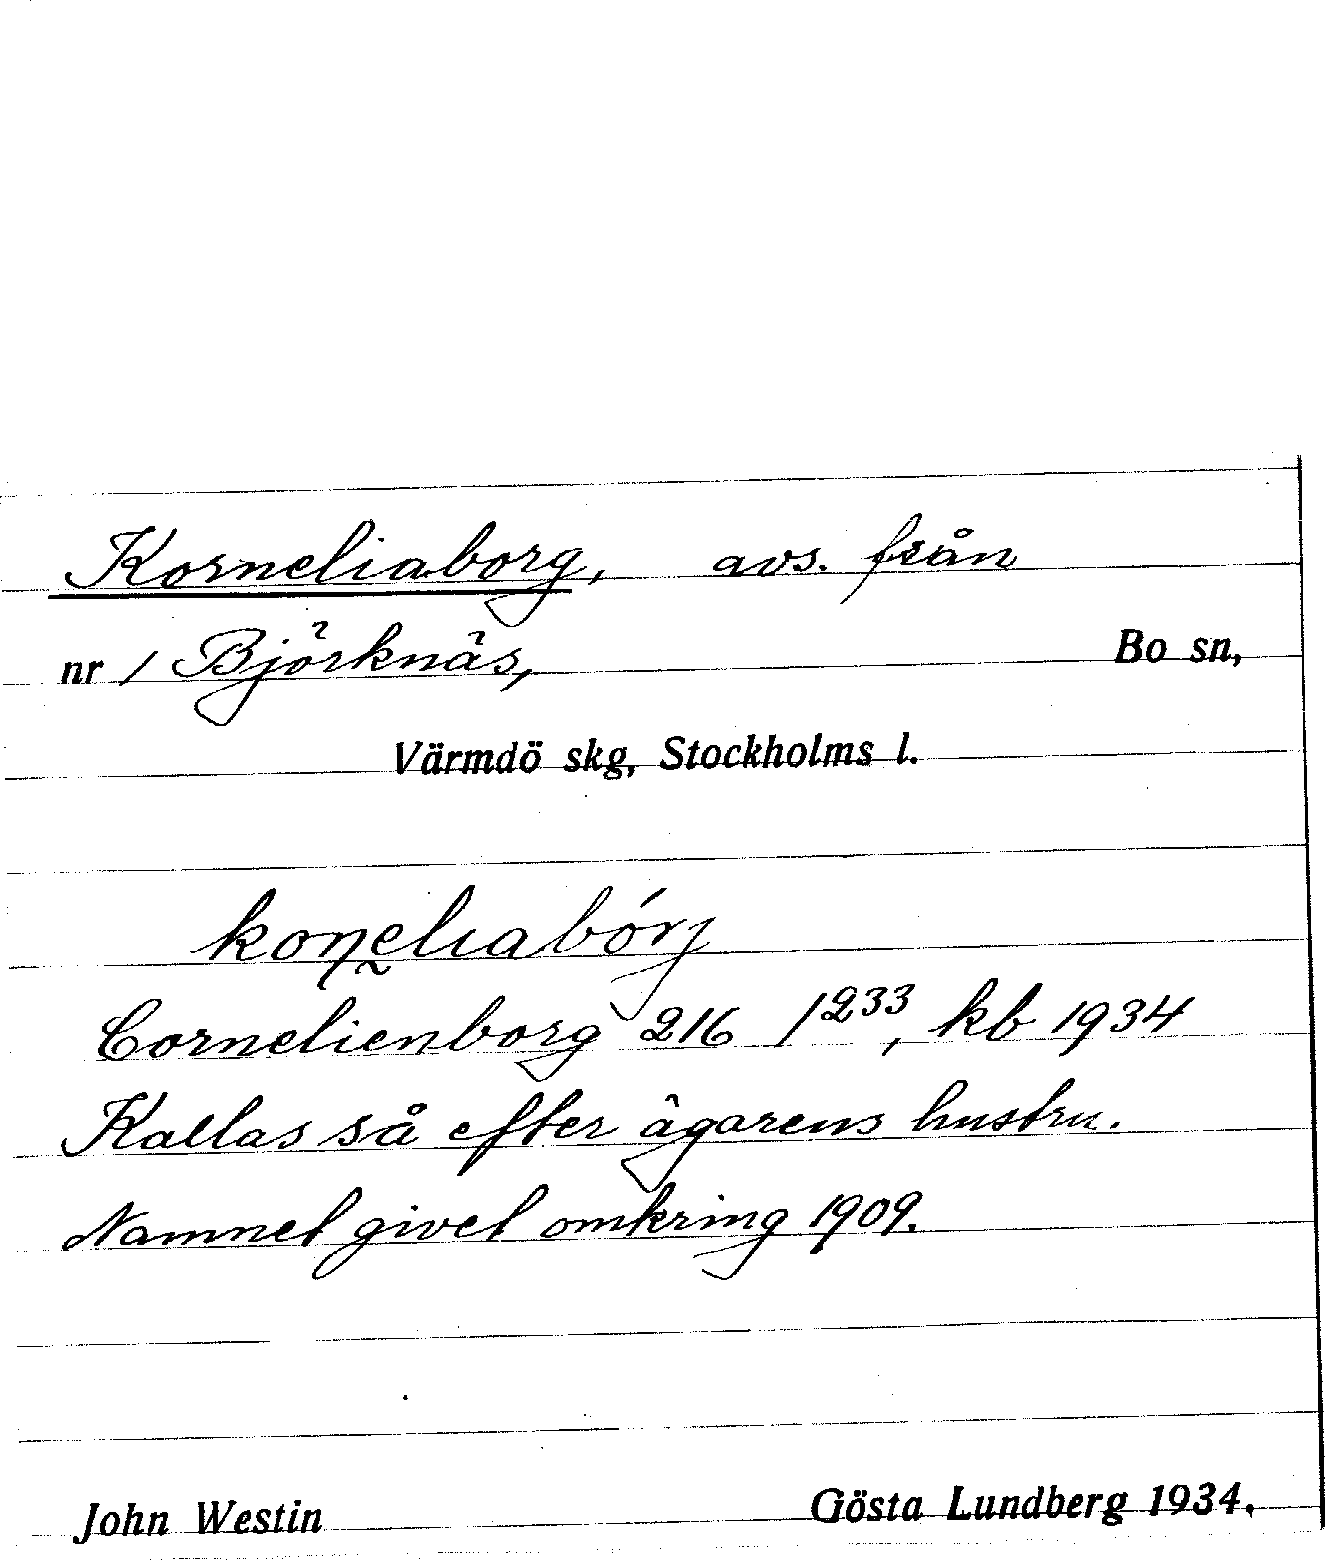 Korneliaborg, avs. från
nr 1 Björknäs, Bo sn,
Värmdö skg, Stockholms l.
Cornelienborg 216 1²³³, kb 1934
Kallas så efter ägarens hustru.
Namnet givet omkring 1909.
John Westin Gösta Lundberg 1934.